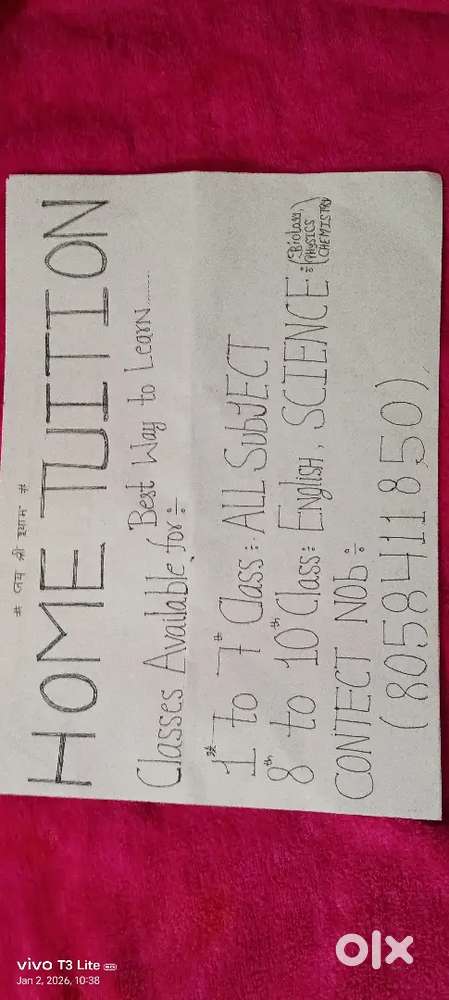 # जय श्री श्याम #
HOME TUITION
"Best Way to Learn........
Classes Available for:-
1st to 7th Class:- ALL SubJECT
8th to 10th Class: English, SCIENCE:- (Biology, PHYSICS CHEMISTRY)
CONTECT NOb:-
(8058411850)
vivo T3 Lite 5G
Jan 2, 2026, 10:38
olx